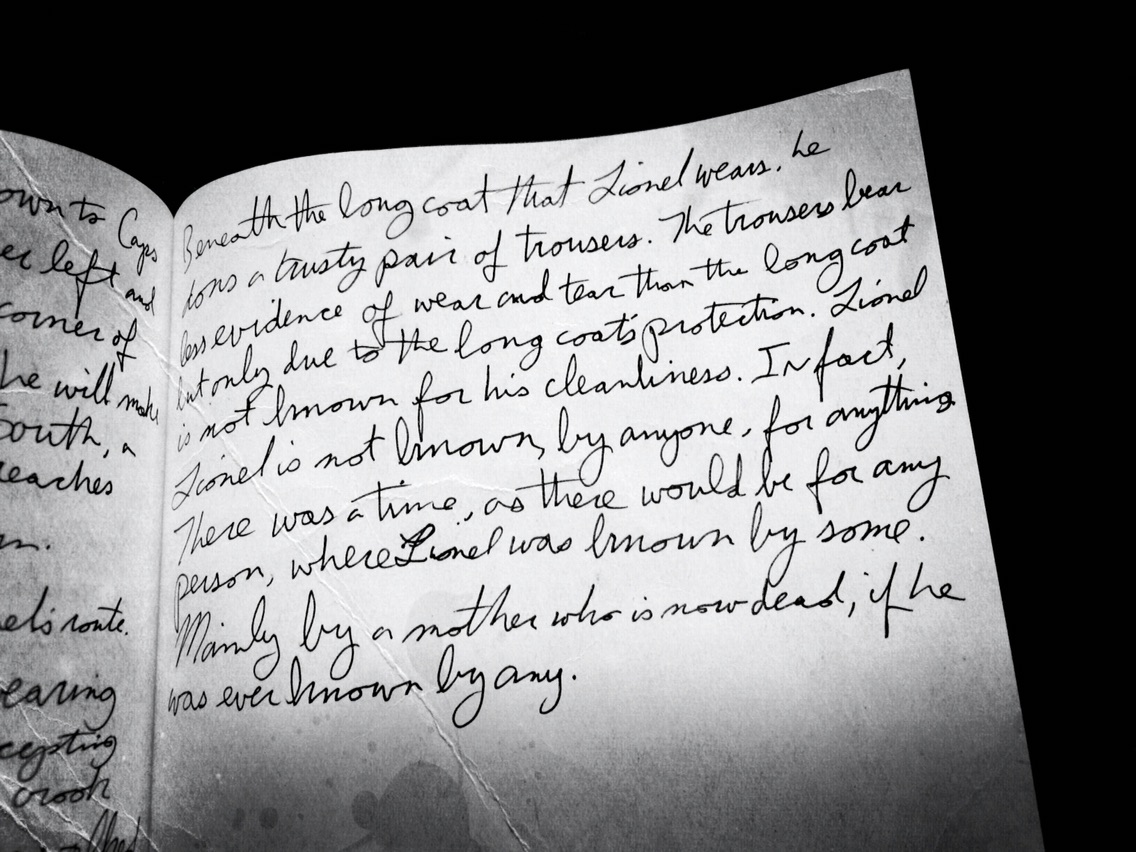 own to Cape
er left and
corner of
he will make
South, a
reaches
el's route.
earing
cepting
crook
Beneath the long coat that Lionel wears, he
dons a trusty pair of trousers. The trousers bear
less evidence of wear and tear than the long coat
but only due to the long coat's protection. Lionel
is not known for his cleanliness. In fact,
Lionel is not known, by anyone, for anything
There was a time, as there would be for any
person, where Lionel was known by some.
Mainly by a mother who is now dead, if he
was ever known by any.